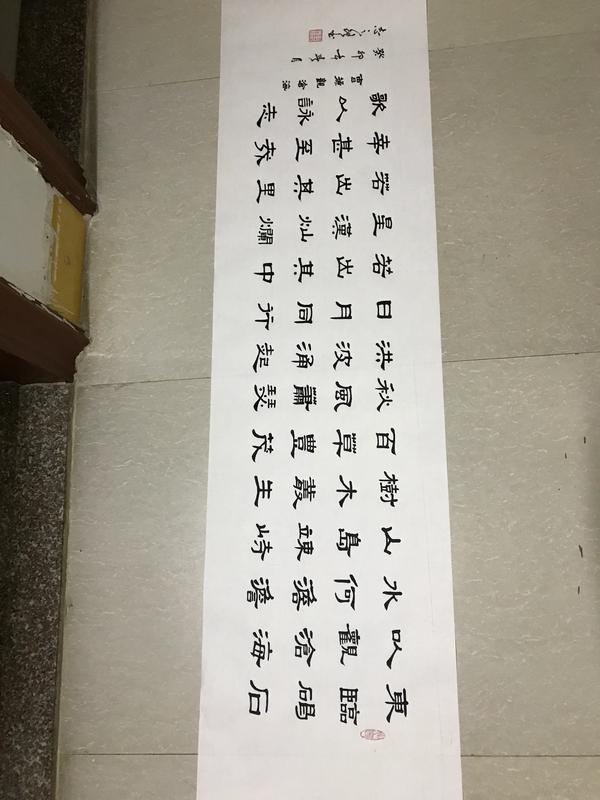 東臨碣石
以觀滄海
水何澹澹
山島竦峙
樹木叢生
百草豐茂
秋風蕭瑟
洪波涌起
日月同行
若出其中
星漢灿爛
若出其里
幸甚至
歌以詠志
曹操觀滄海
癸卯年
志